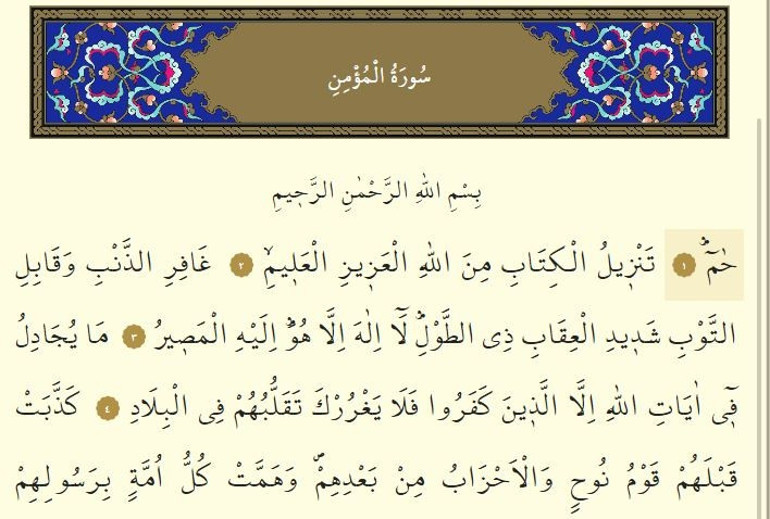 سُورَةُ الْمُؤْمِنِ
بِسْمِ اللهِ الرَّحْمٰنِ الرَّحٖيمِ
حٰمٓ ۚ ١ تَنْزٖيلُ الْكِتَابِ مِنَ اللهِ الْعَزٖيزِ الْعَلٖيمِۙ ٢ غَافِرِ الذَّنْبِ وَقَابِلِ
التَّوْبِ شَدٖيدِ الْعِقَابِ ذِى الطَّوْلِؕ لَٓا اِلٰهَ اِلَّا هُوَؕ اِلَيْهِ الْمَصٖيرُ ٣ مَا يُجَادِلُ
فٖٓى اٰيَاتِ اللهِ اِلَّا الَّذٖينَ كَفَرُوا فَلَا يَغْرُرْكَ تَقَلُّبُهُمْ فِى الْبِلَادِ ٤ كَذَّبَتْ
قَبْلَهُمْ قَوْمُ نُوحٍ وَالْاَحْزَابُ مِنْ بَعْدِهِمْۖ وَهَمَّتْ كُلُّ اُمَّةٍ بِرَسُولِهِمْ